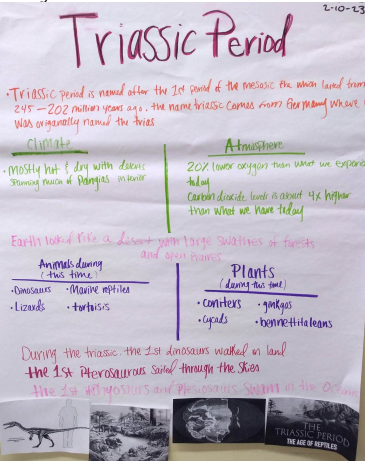 2-10-23
Triassic Period
• Triassic period is named after the 1st period of the mesosic the which lasted from
245-202 million years ago. the name triassic comes from Germany where
was originally named the trias
Climate
• mostly hot & dry with deserts
spanning much of Pangias interior
Atmosphere
20% lower oxygen than what we
today
Carbon dioxide levels is about 4x higher
than what we have today
Earth looked like a desert with large swathes of forests
and open plaines
Animals during
(this time)
• Dinosaurs • Marine reptiles
• Lizards • tortoisis
Plants
(during this time)
• conifers • ginkgos
• Cycads • bennettitaleans
During the triassic the 1st dinosaurs walked on land
the 1st Pterosaurous Sailed through the skies
the 1st and Plesiosaurs swam in the
THE
TRIASSIC PERIOD
THE AGE OF REPTILES